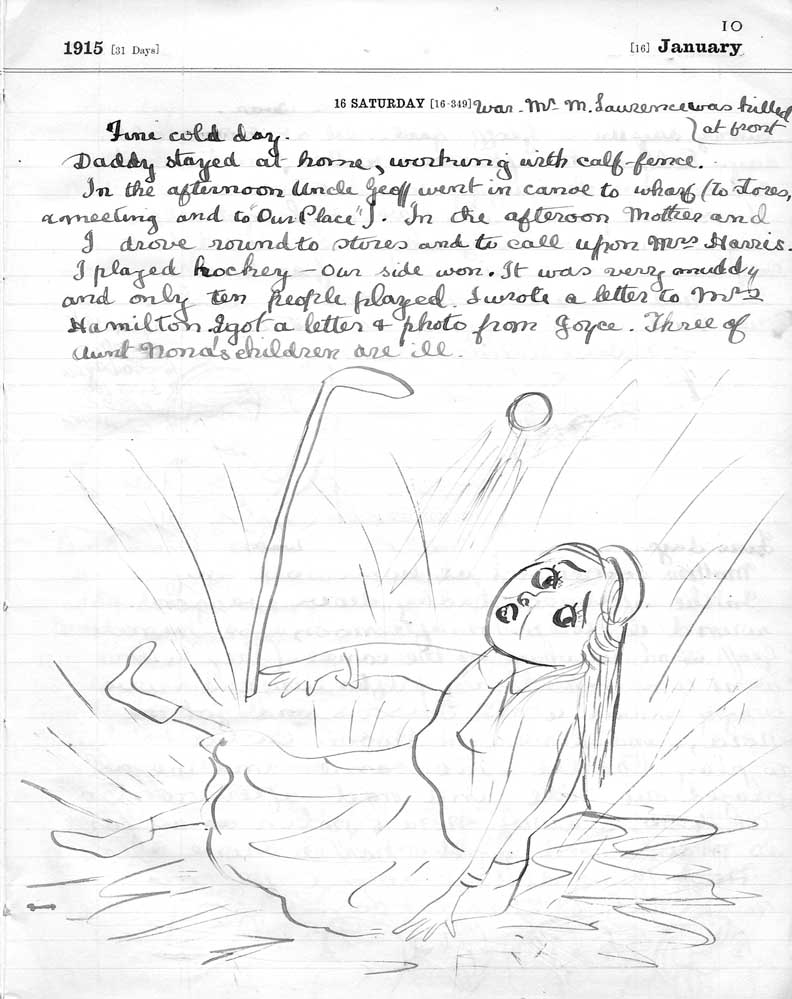 10
1915 [31 Days] [16] January
16 SATURDAY [16-349] War - Mr. M. Lawrence was killed
at front
Fine cold day.
Daddy stayed at home, working with calf-fence.
In the afternoon Uncle Geoff went in canoe to wharf (to stores,
a meeting and to "Our Place"). In the afteroon Mother and
I drove round to stores and to call upon Mrs Harris.
I played hockey – Our side won. It was very muddy
and only ten people played. I wrote a letter to Mrs
Hamilton. I got a letter & photo from Joyce. Three of
Aunt Nona's children are ill.